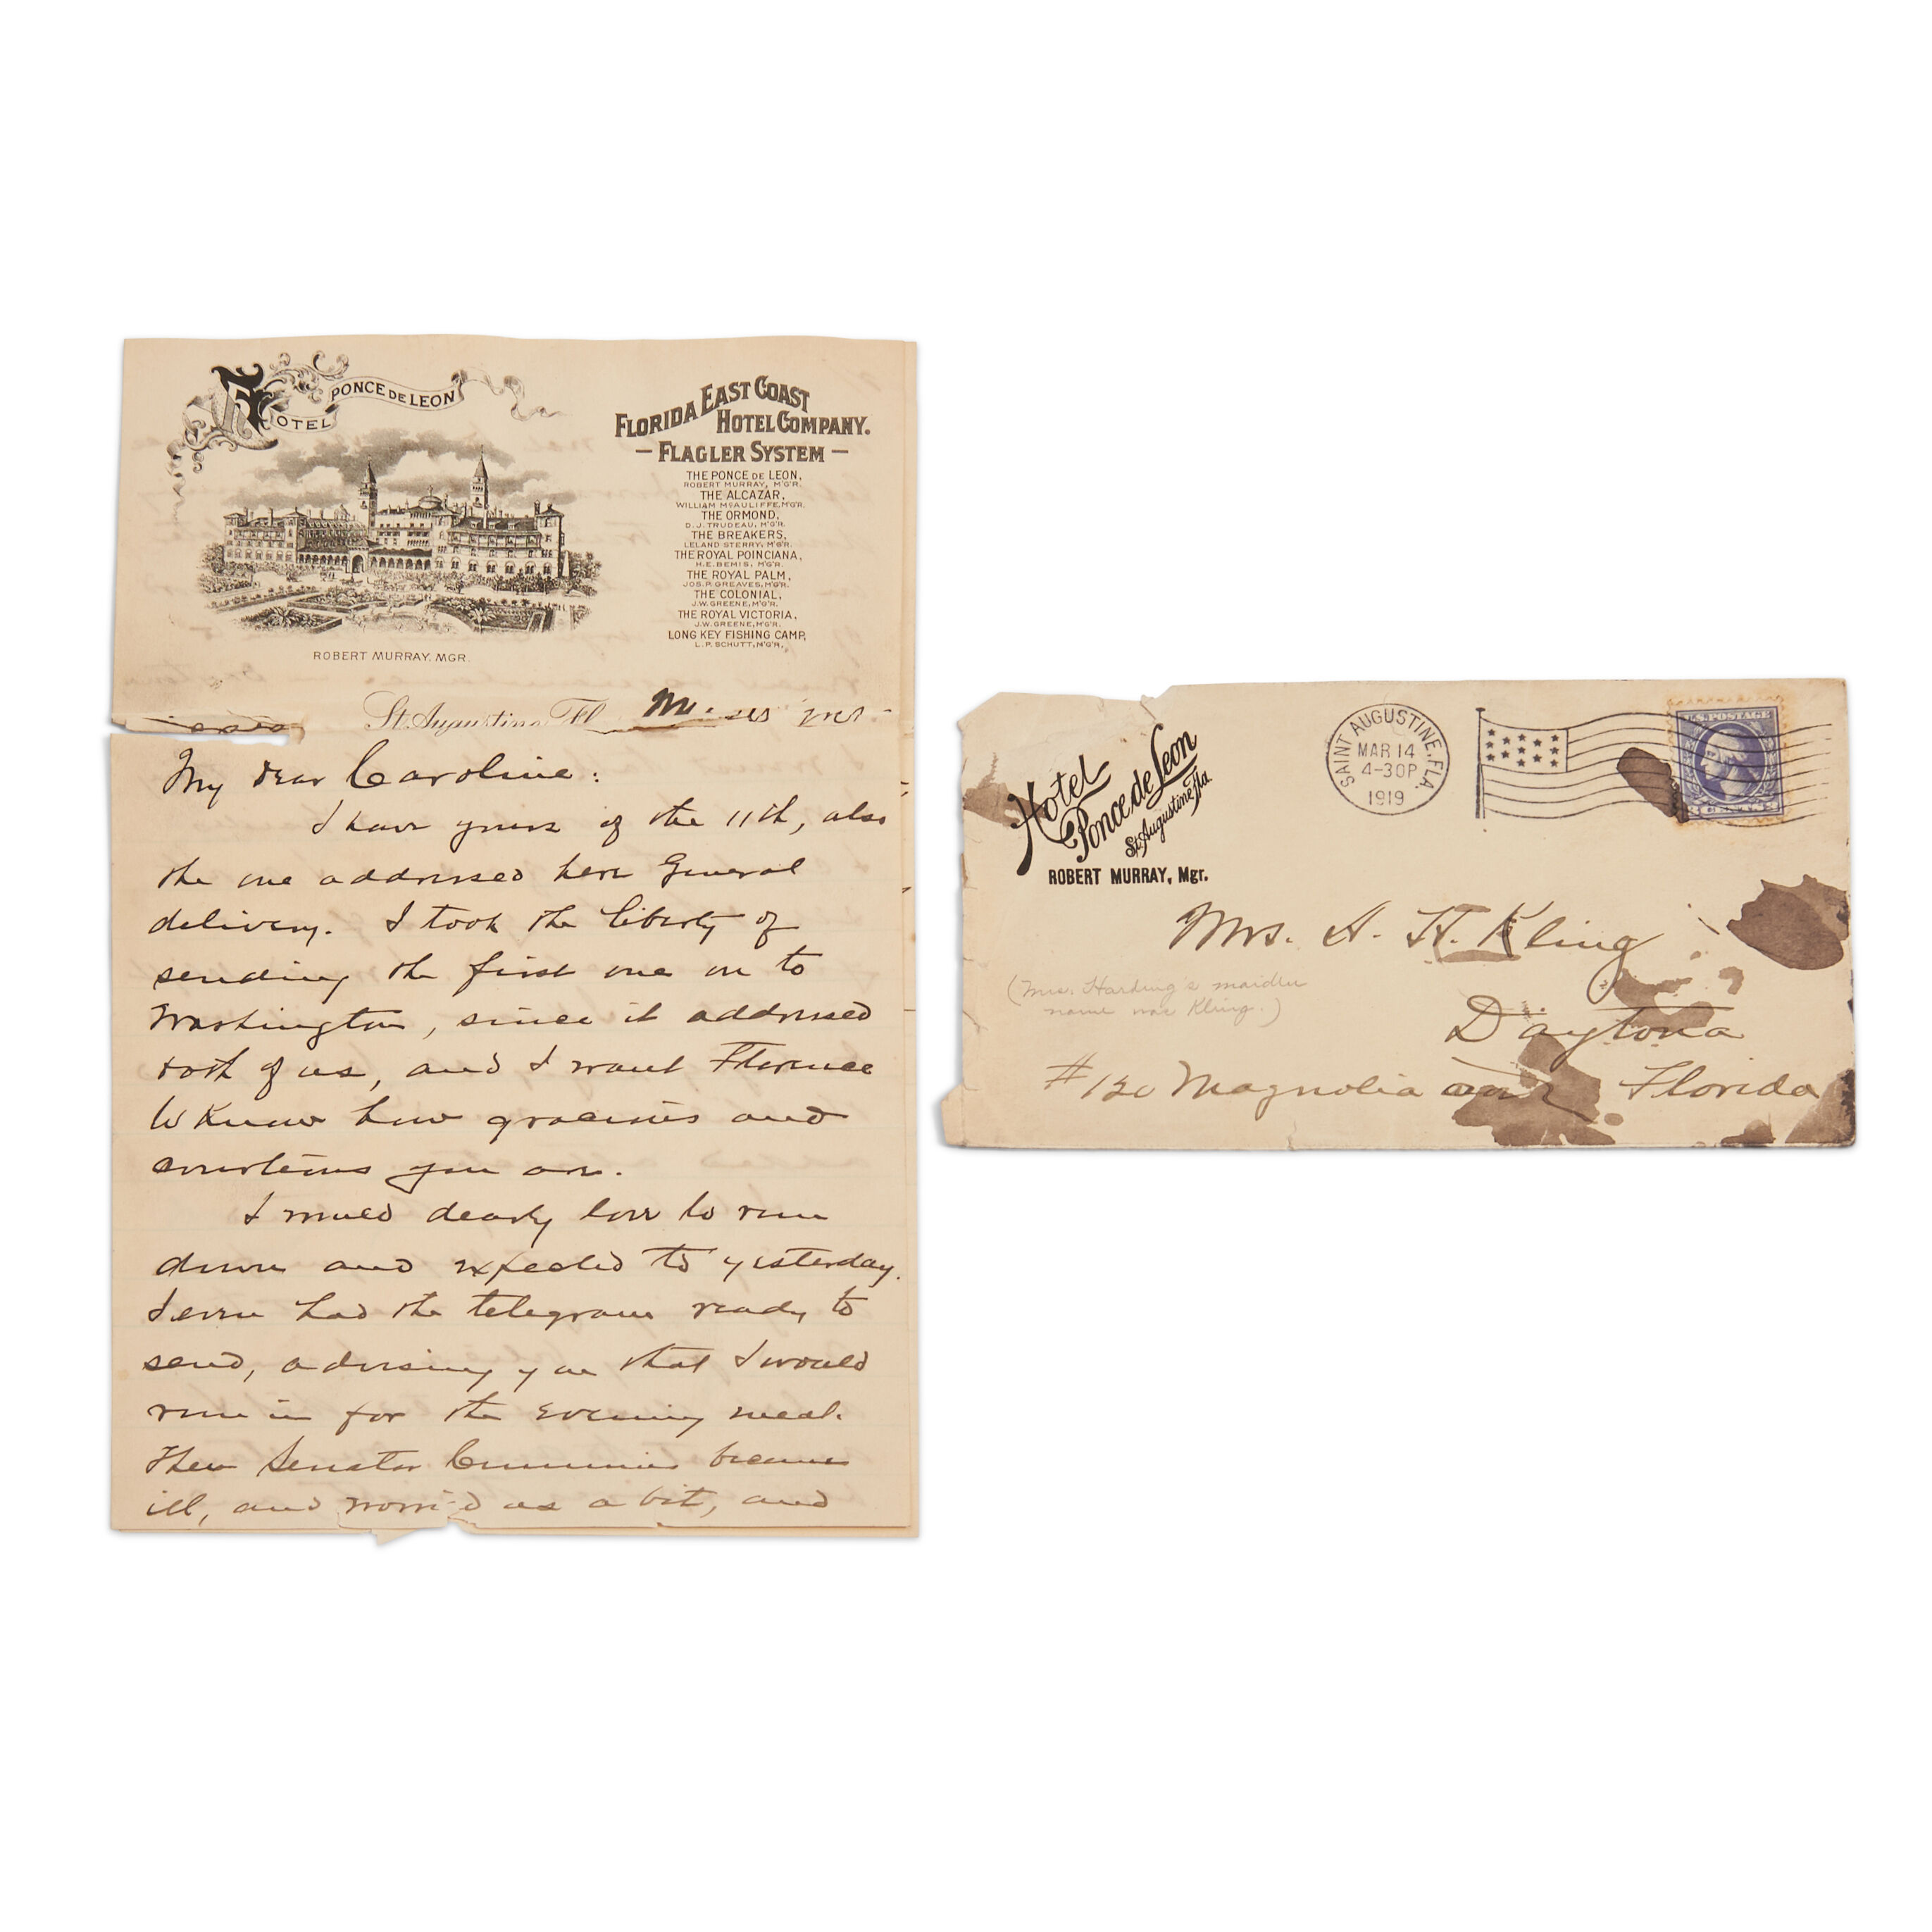 HOTEL PONCE DE LEON
ROBERT MURRAY, MGR.
FLORIDA EAST COAST
HOTEL COMPANY.
— FLAGLER SYSTEM —
THE PONCE DE LEON,
ROBERT MURRAY, M'G'R.
THE ALCAZAR,
WILLIAM McAULIFFE, M'G'R.
THE ORMOND,
D. J. TRUDEAU, M'G'R.
THE BREAKERS,
LELAND STERRY, M'G'R.
THE ROYAL POINCIANA,
H. E. BEMIS, M'G'R.
THE ROYAL PALM,
JOS. P. GREAVES, M'G'R.
THE COLONIAL,
J. W. GREENE, M'G'R.
THE ROYAL VICTORIA,
J. W. GREENE, M'G'R.
LONG KEY FISHING CAMP,
L. P. SCHUTT, M'G'R,
St. Augustine, Fl
My dear Caroline:
I have yours of the 11th, also
the one addressed here General
delivery. I took the liberty of
sending the first one on to
Washington, since it addressed
both of us, and I want Florence
to know how gracious and
courteous you are.
I would dearly love to run
down and expected to yesterday.
I even had the telegram ready to
send, advising you that I would
run in for the evening meal.
Then Senator Cummins became
ill, and worried us a bit, and
Hotel
Ponce de Leon
St. Augustine, Fla.
ROBERT MURRAY, Mgr.
SAINT AUGUSTINE, FLA.
MAR 14
4-30P
1919
U.S. POSTAGE
3 CENTS 3
Mrs. A. H. Kling
(Mrs. Harding's maiden
name was Kling.)
Daytona
#120 Magnolia ave Florida